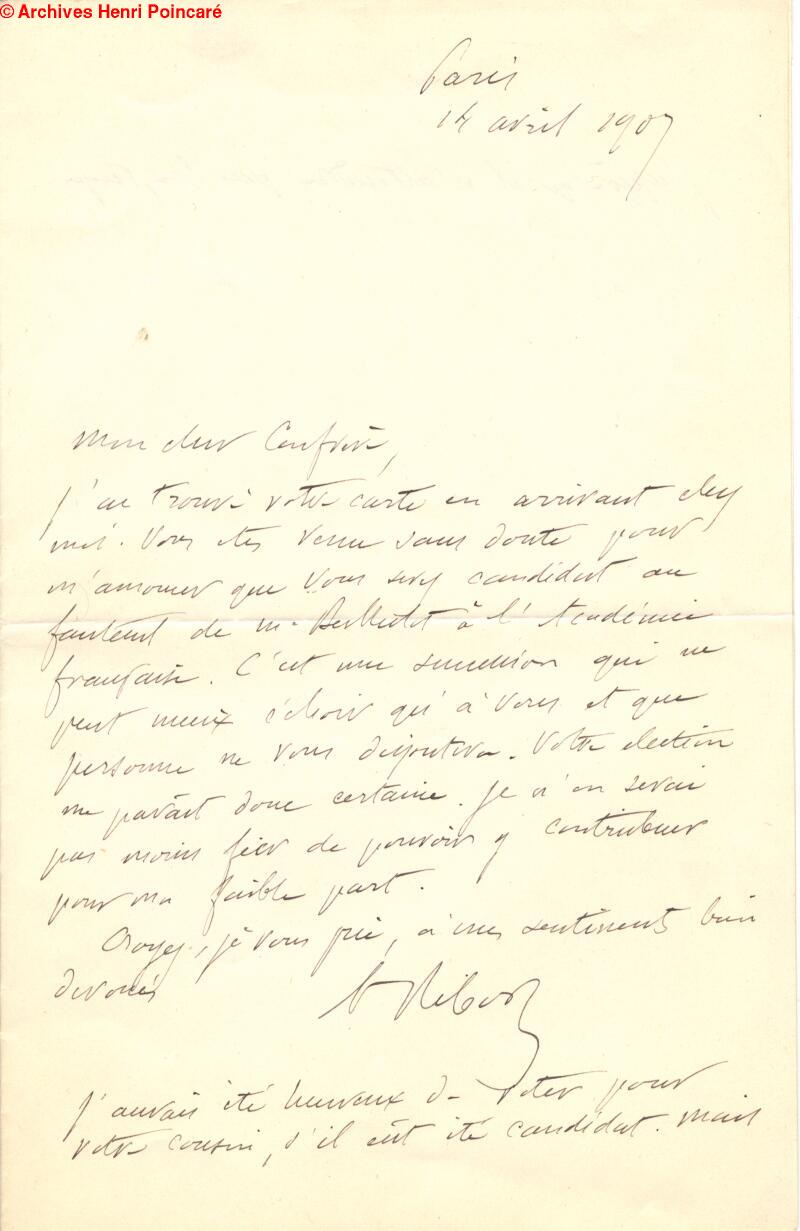 © Archives Henri Poincaré
Paris
14 avril 1907
Mon cher Confrère,
J'ai trouvé votre carte en arrivant chez
moi. Vous êtes venu sans doute pour
m'annoncer que vous serez candidat au
fauteuil de M. Berthelot à l'Académie
française. C'est une succession qui ne
peut mieux échoir qu'à vous et que
personne ne vous disputera. Votre élection
me paraît donc certaine. Je n'en serai
pas moins fier de pouvoir y contribuer
pour ma faible part.
Croyez, je vous prie, à mes sentiments bien
dévoués
A Ribot
J'aurais été heureux de voter pour
votre cousin, s'il eût été candidat. Mais